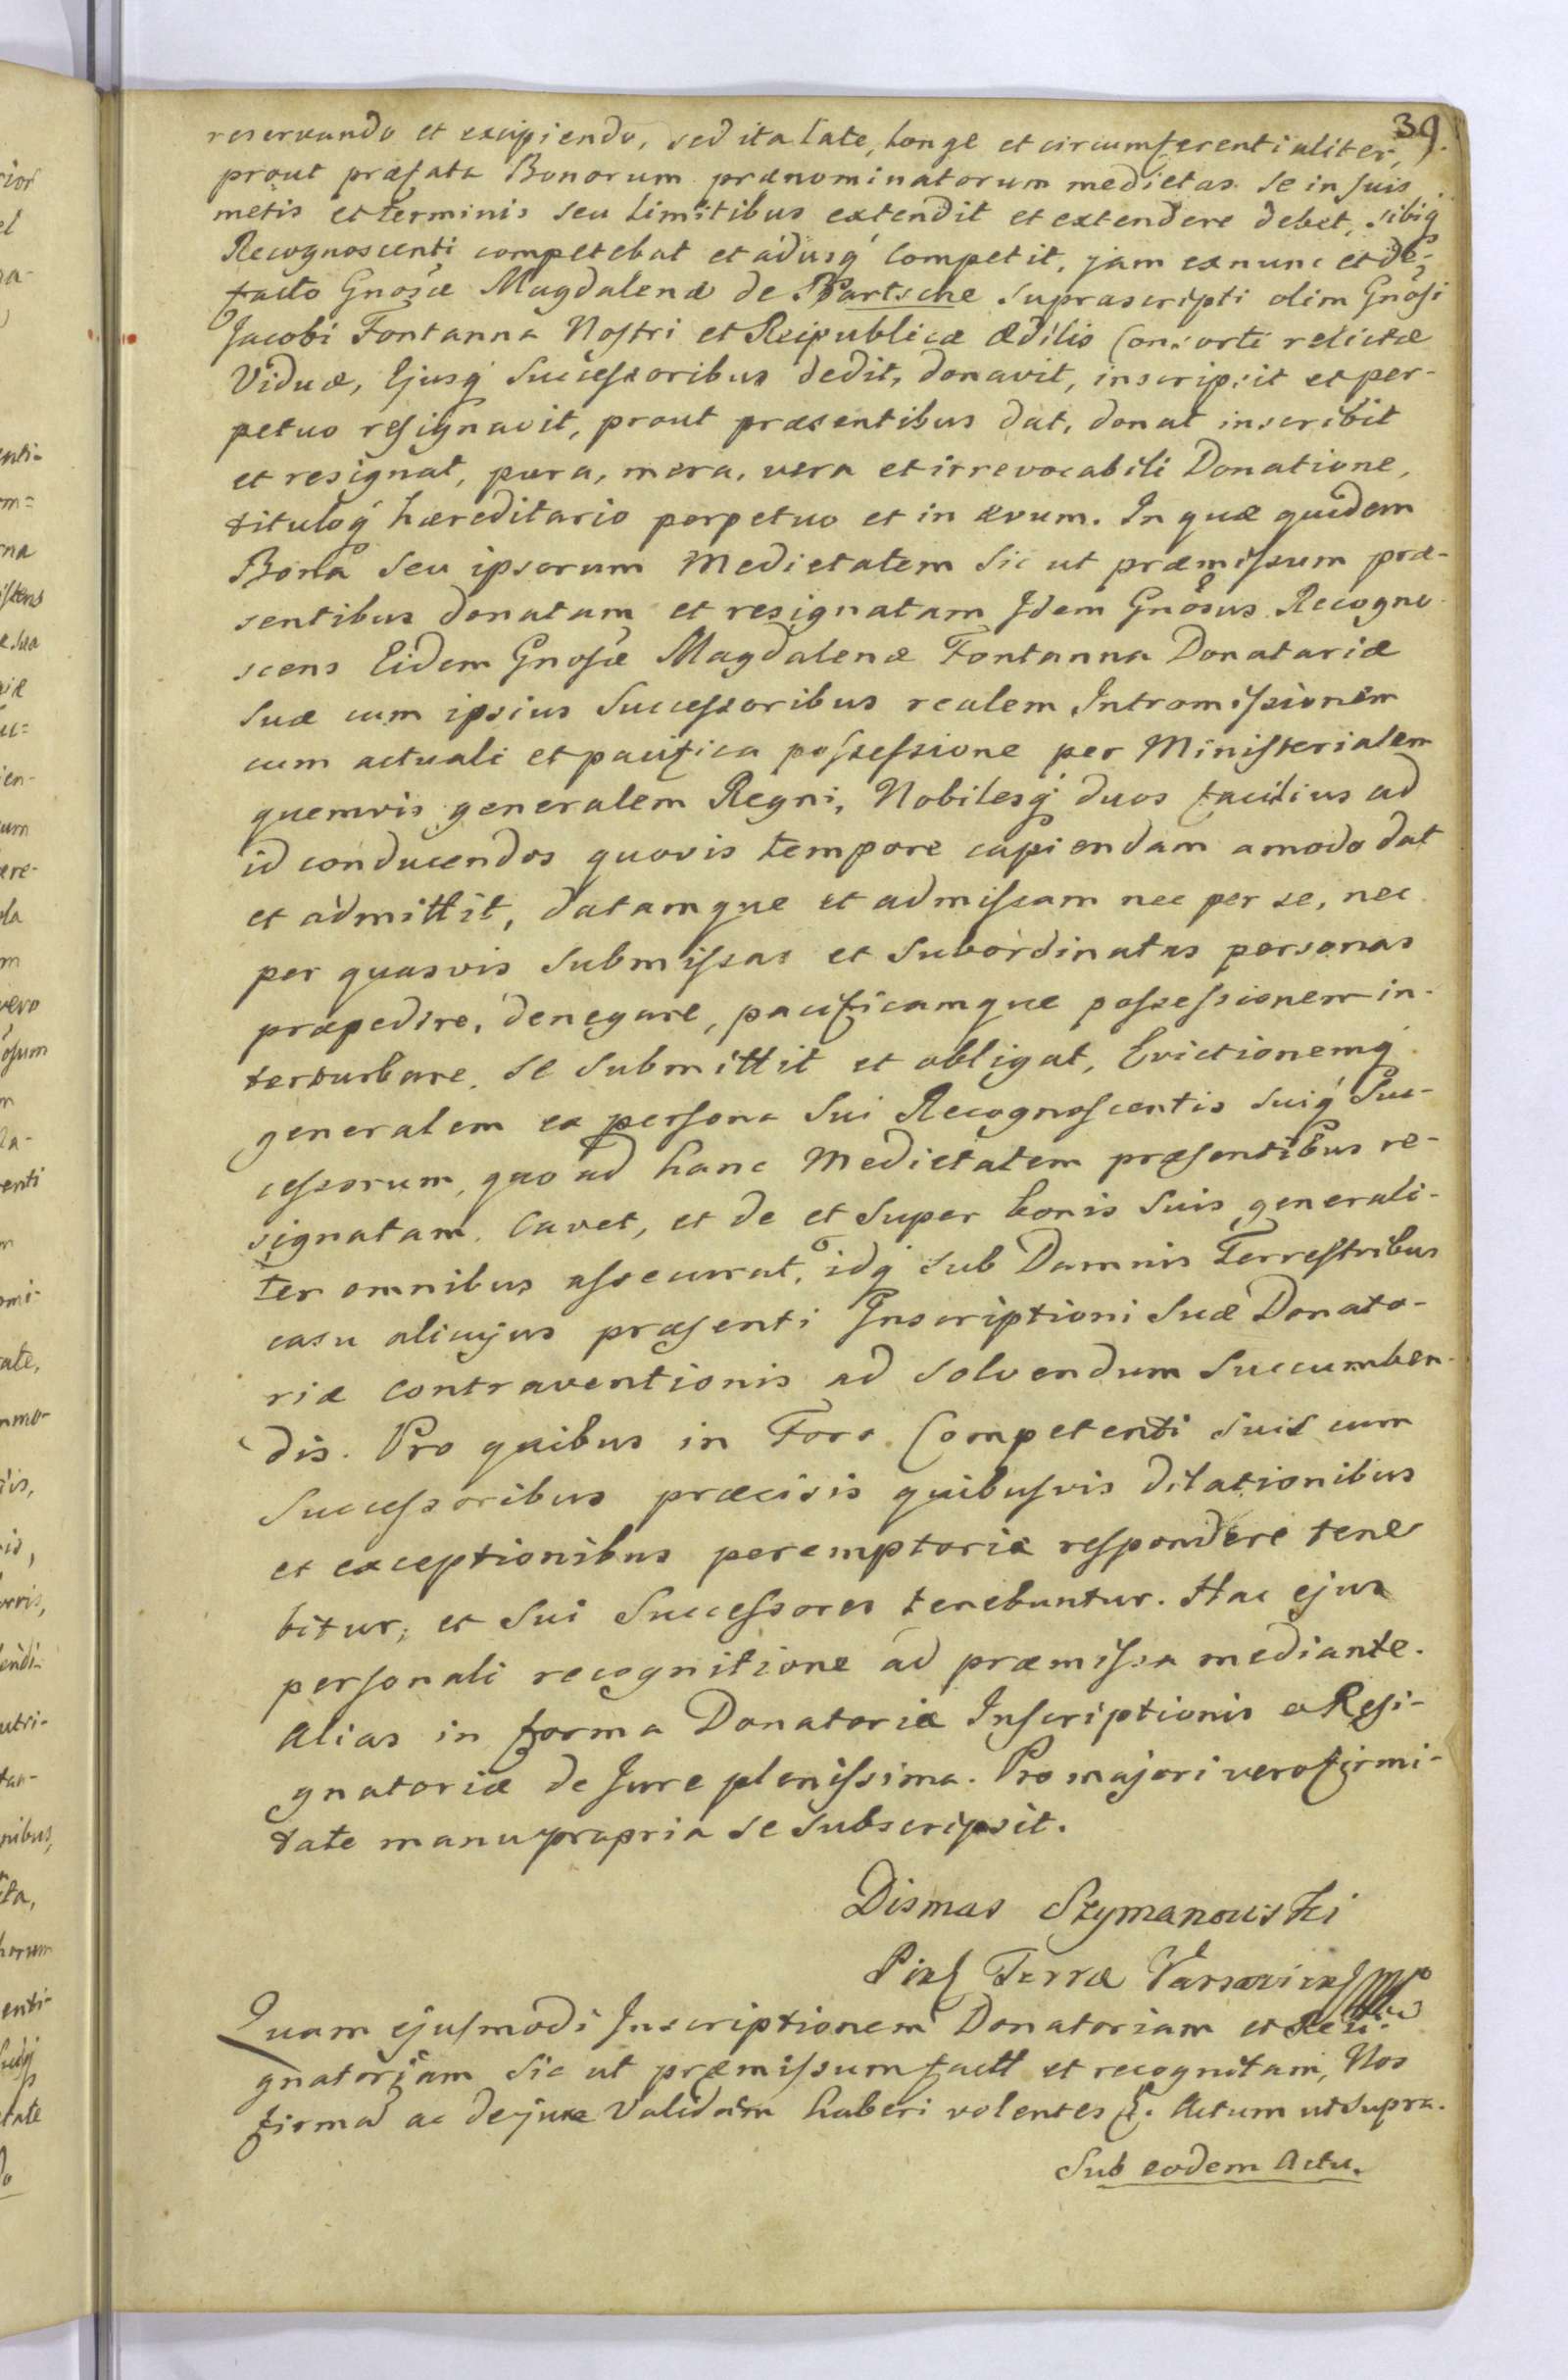 39.
reservando et excipiendo, sed ita late, longe et circumferentialiter,
prout præfata Bonorum prænominatorum medietas se in suis
metis et terminis seu limitibus extendit et extendere debet, sibiq́
Recognoscenti competebat et adusq́ competit, jam ex nunc et de
facto Gnosæ Magdalenæ de Bartsche supra scripti olim Gnosi
Jacobi Fontanna Nostri et Reipublicæ Ædilis Consorti relictæ
Viduæ, Ejusq́ Successoribus dedit, donavit, inscripsit et per-
petuo resignavit, prout præsentibus dat, donat inscribit
et resignat, pura, mera, vera et irrevocabili Donatione,
tituloq́ hæreditario perpetuo et in ævum. In quæ quidem
Bona seu ipsorum Medietatem sic ut præmissum præ-
sentibus donatam et resignatam Idem Gnosus Recogno-
scens Eidem Gnosæ Magdalenæ Fontanna Donatariæ
suæ cum ipsius Successoribus realem Intromissionem
cum actuali et pacifica possessione per Ministerialem
quemvis generalem Regni, Nobilesq́ duos facilius ad
id conducendos quovis tempore capiendam a modo dat
et admittit, datamque et admissam nec per se, nec
per quasvis submissas et subordinatas personas
præpedire, denegare, pacificamque possessionem in-
terturbare, se submittit et obligat, Evictionemq́
generalem ex persona sui Recognoscentis suiq́ Suc-
cessorum, quo ad hanc Medietatem præsentibus re-
signatam cavet, et de et super bonis suis generali-
ter omnibus assecurat, idq́ sub Damnis Terrestribus
casu alicujus præsenti Inscriptioni suæ Donato-
riæ contraventionis ad solvendum succumben-
dis. Pro quibus in Foro Competenti suis cum
Successoribus præcisis quibusvis dilationibus
et exceptionibus peremptorie respondere tene
bitur, et sui Successores tenebuntur. Hac ejus
personali recognitione ad præmissa mediante.
Alias in forma Donatoriæ Inscriptionis a Resi-
gnatoriæ de Jure plenissima. Pro majori vero firmi-
tate manu propria se subscripsit.
Dismas Szymanowski
Terræ Varsovien
Quam ejusmodi Inscriptionem Donatoriam et Resi-
gnatoriam sic ut præmissum fact et recognitam, Nos
firma ac de jure Validam haberi volentes. Actum ut supra.
Sub eodem Actu.